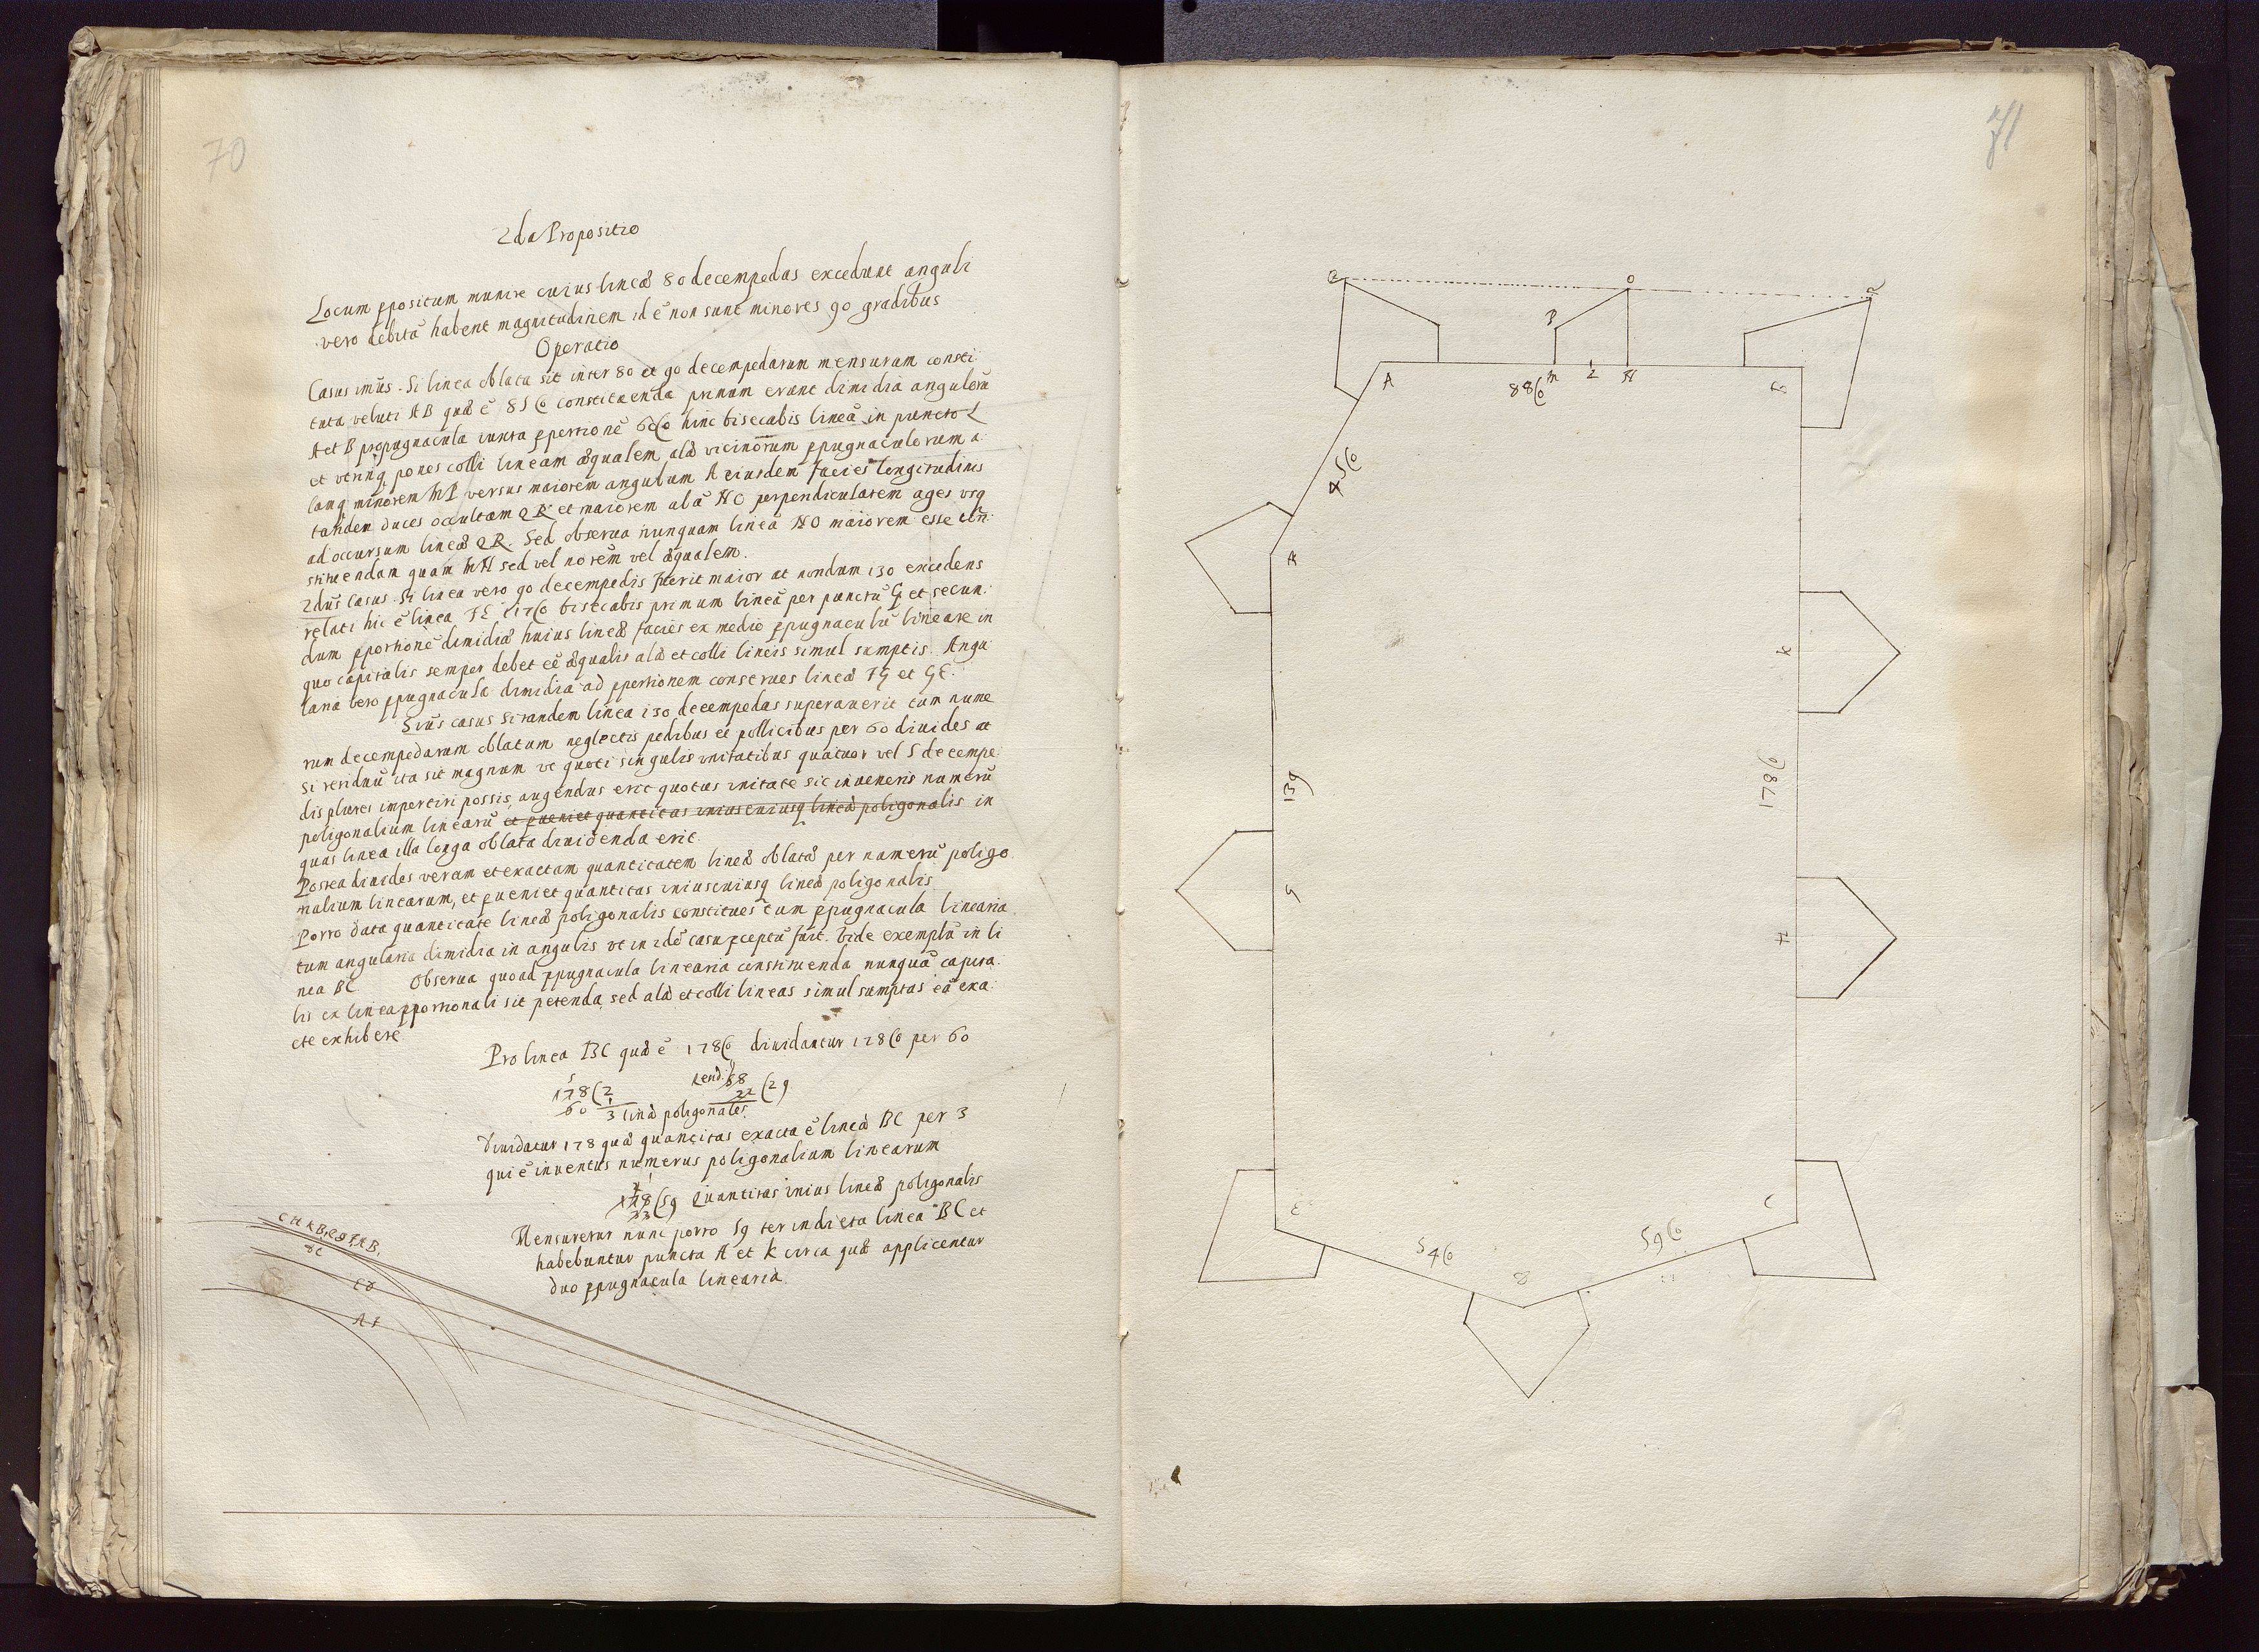 70
2da Propositio
Locum ppositum munire cuius lineæ 80 decempedas excedunt anguli
vero debitā habent magnitudinem id ē non sunt minores 90 gradibus
Operatio
Casus imus. Si linea oblata sit inter 80 et 90 decempedarum mensuram consti
tuta veluti AB quæ ē constituenda primum erunt dimidia angulorū
A et B propugnacula iuxta pportionē hinc bisecabis lineā in puncto L
et utrinq pones colli lineam æqualem alæ vicinorum ppugnaculorum a
lamq minorem versus maiorem angulum A eiusdem facies longitudinis
tandem duces occultam QR et maiorem alā NO perpendicularem ages usq
ad occursum lineæ QR. Sed observa nunquam lineā NO maiorem esse con
stituendam quam MN sed vel vel æqualem.
2dus Casus. Si linea vero 90 decempedis fuerit maior at nondum 130 excedens
velati hic ē linea bisecabis primum lineā per punctū G et secun
dum pportionē dimidiæ huius lineæ facies ex medio ppugnaculū lineare in
quo capitalis semper debet eē æqualis alæ et colli lineis simul sumptis. Angu
laria vero ppugnacula dimidia ad pportionem construes lineæ FG et GE.
3ius casus Si tandem linea 130 decempedas superaverit tum nume
rum decempedarum oblatum neglectis pedibus et pollicibus per 60 divides at
si residuū ita sit magnum ut quoti singulis unitatibus quatuor vel 5 decempe
dis plures impertiri possis, augendus erit quotus unitate sic inveneris numerū
poligonalium linearū et pveniet quantitas uniuscuiusq lineæ poligonalis in
quas linea illa longa oblata dividenda erit.
Postea divides veram et exactam quantitatem lineæ oblatæ per numerū poligo
nalium linearum, et pveniet quantitas uniuscuiusq lineæ poligonalis
Porro data quantitate lineæ poligonalis constitues tum ppugnacula linearia
tum angularia dimidia in angulis ut in 2do casu pceptū fuit. Vide exemplū in li
nea BC Observa quoad ppugnacula linearia constituenda nunquā capita
lis ex linea pportionali sit petenda, sed alæ et colli lineas simul sumptas eā exa
cte exhibere
Pro linea BC quæ ē 178 dividantur 178 per 60
5
178(2 58
60 1 22 (29
3 lineæ poligonales
Dividatur 178 quæ quantitas exacta ē lineæ BC per 3
qui ē inventus numerus poligonalium linearum
178(59 Quantitas unius lineæ poligonalis
33
Mensuretur nunc porro 59 ter in dicta linea BC et
habebuntur puncta H et K circa quæ applicentur
duo ppugnacula linearia
71
Q
O
R
P
A
M
L
N
B
45
F
K
139
178
G
H
E
C
54
59
D